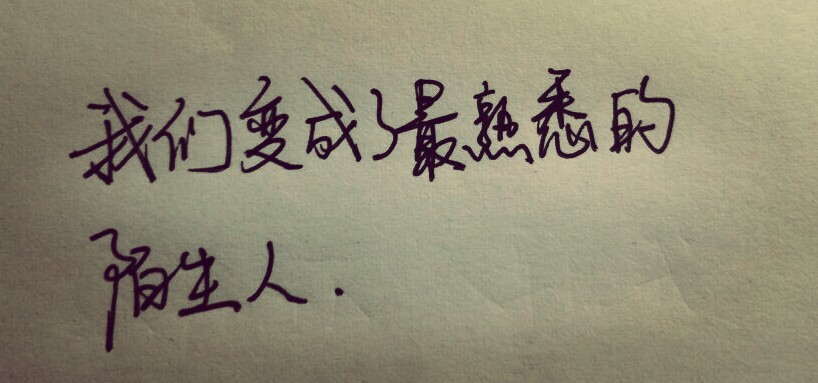 我们变成了最熟悉的
陌生人.